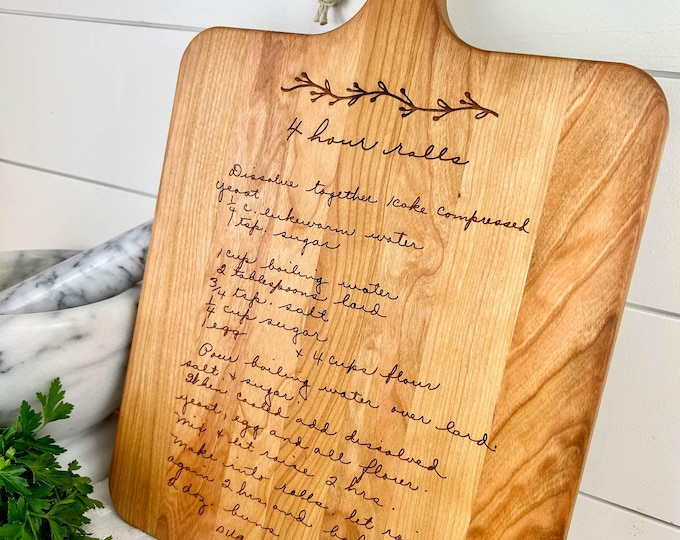 4 hour rolls
Dissolve together 1 cake compressed
yeast
1/4 c. lukewarm water
1 tsp. sugar
1 cup boiling water
2 tablespoons lard
3/4 tsp. salt
1/4 cup sugar
1 egg & 4 cups flour
Pour boiling water over lard.
salt & sugar.
When cooled add dissolved
yeast, egg and all flour.
Mix & let raise 2 hrs.
Make into rolls, let
again 2 hrs and
2 doz buns